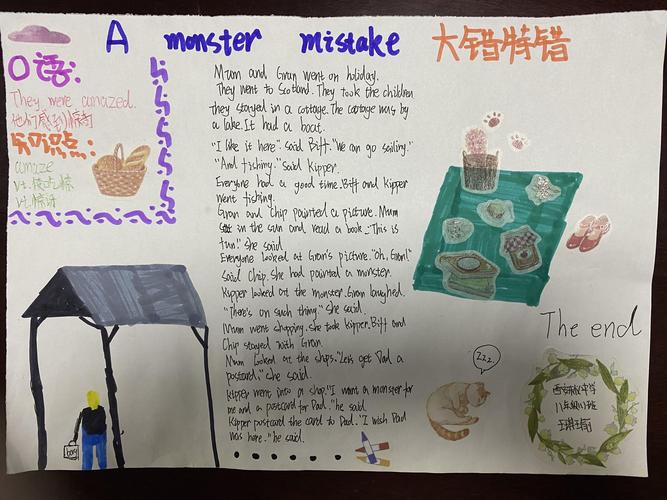 A monster mistake 大错特错
口语:
They were amazed.
他们感到惊奇
知识点:
amaze
vt.使吃惊
vi.惊讶
Mum and Gran went on holiday.
They went to Scotland. They took the children
They stayed in a cottage. The cottage was by
a lake. It had a boat.
"I like it here" said Biff. "We can go sailing."
"And fishing." said Kipper.
Everyone had a good time. Biff and Kipper
went fishing.
Gran and Chip painted a picture. Mum
sat in the sun and read a book. "This is
fun." she said.
Everyone looked at Gran's picture. "Oh, Gran!"
said Chip. She had painted a monster.
Kipper looked at the monster. Gran laughed.
"There's on such thing." she said.
Mum went shopping. She took Kipper. Biff and
Chip stayed with Gran.
Mum looked at the shops. "Let's get Dad a
postcard." she said.
Kipper went into a shop. "I want a monster for
me and a postcard for Dad." he said.
Kipper postcard the card to Dad. "I wish Dad
was here." he said.
The end
zzz
bag
中学
八年级 班